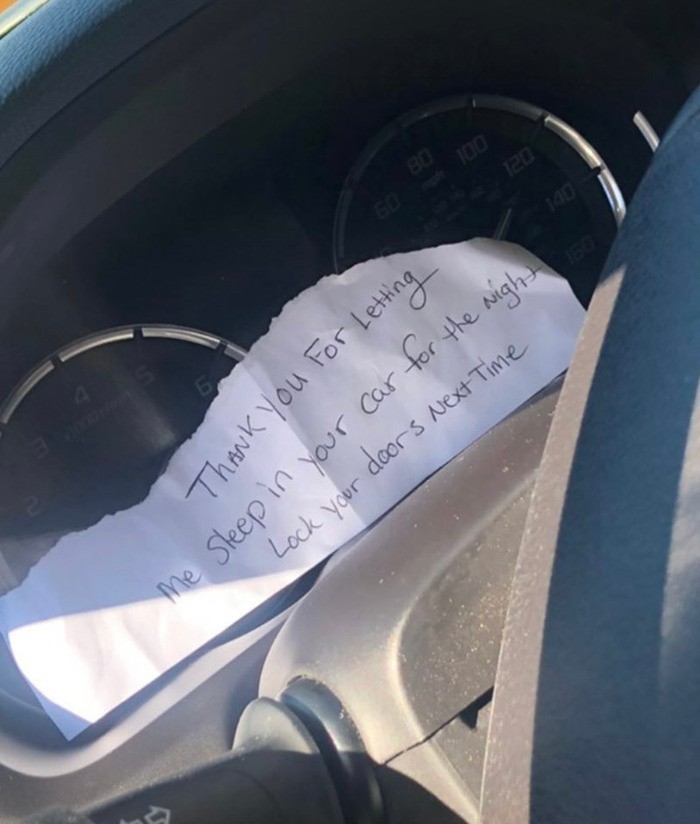 THANK you For Letting
Me Sleep in your car for the night
Lock your doors Next Time
60
80
100
120
140
160
mph
2
3
4
5
6